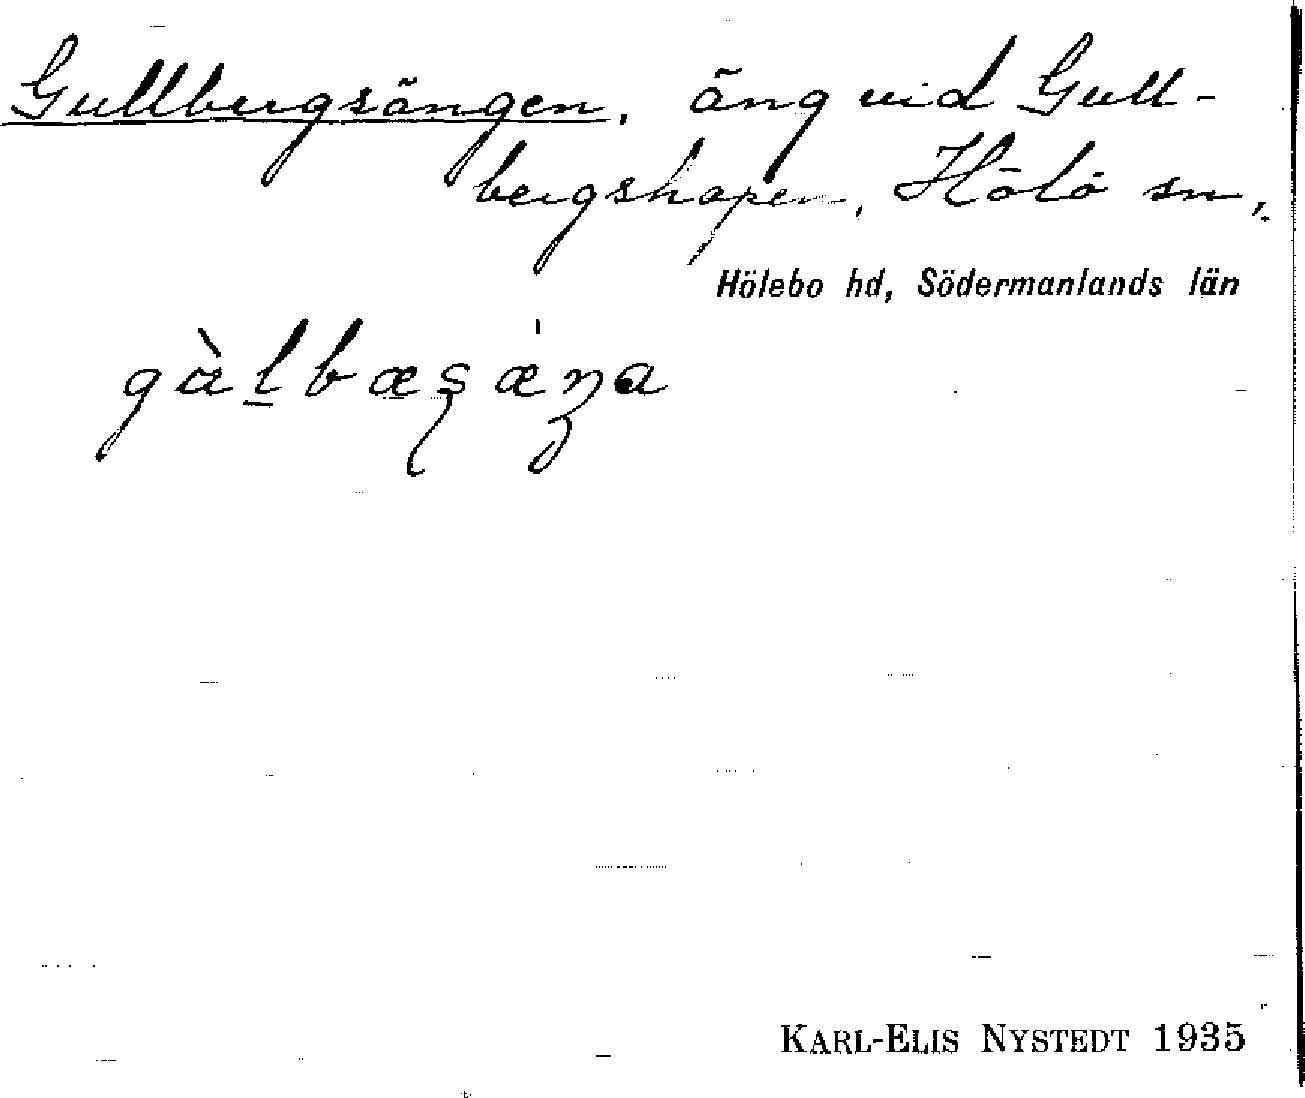 Gullbergsängen, äng vid Gull-
bergshagen, Hölö sn,
Hölebo hd, Södermanlands län
KARL-ELIS NYSTEDT 1935